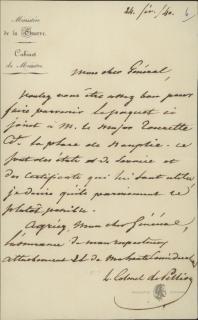 Ministère
de la Guerre.
Cabinet
du Ministre.
24. fév. / 40.
Mon cher Général,
Voulez vous être assez bon pour
faire parvenir le paquet ci
joint à M. le Major Tourette
de la place de Nauplie. ce
sont des états de service et
des Certificats qui lui sont utiles
je désire qu'ils parviennent le
plutôt possible.
Agréez, Mon cher Général,
l'assurance de mon respectueux
attachement et de ma haute considération
le Colonel